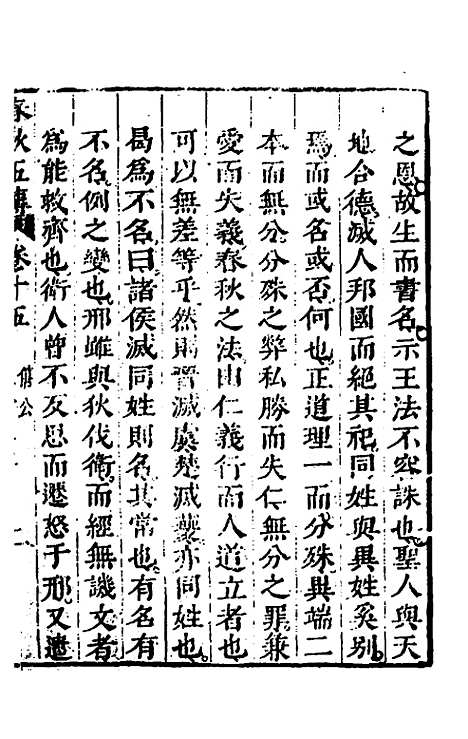 之恩故生而書名示王法不容誅也聖人與天
地合德滅人邦國而絕其祀同姓與異姓奚別
焉而或名或否何也正道理一而分殊異端二
本而無分分殊之弊私勝而失仁無分之罪兼
愛而失義春秋之法由仁義行而人道立者也
可以無差等乎然則晉滅虞楚滅夔亦同姓也
曷為不名曰諸侯滅同姓則名其常也有名有
不名例之變也邢雖與狄伐衛而經無譏文者
為能救齊也衛人曾不反思而遷怒于邢又遣
春秋五傳 卷十五 僖公